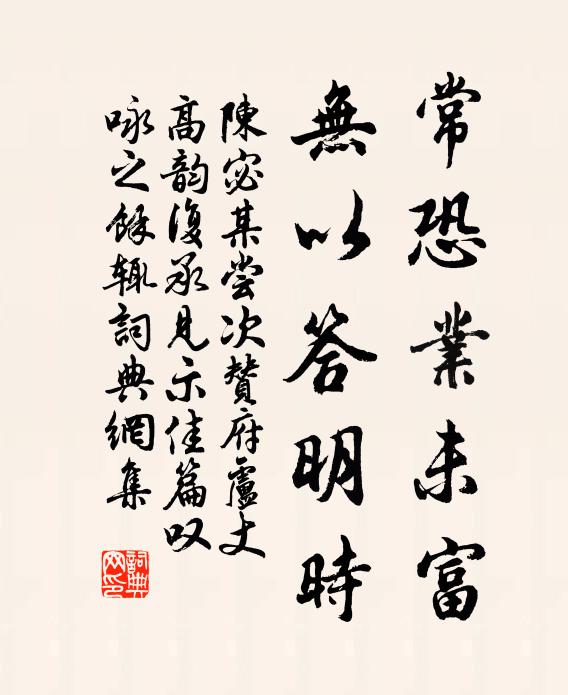 常恐業未富
無以答明時
陳宓某尝次賛府蘆丈
高韵復承見示佳篇叹
咏之餘辄詞典網集
詞典
网印